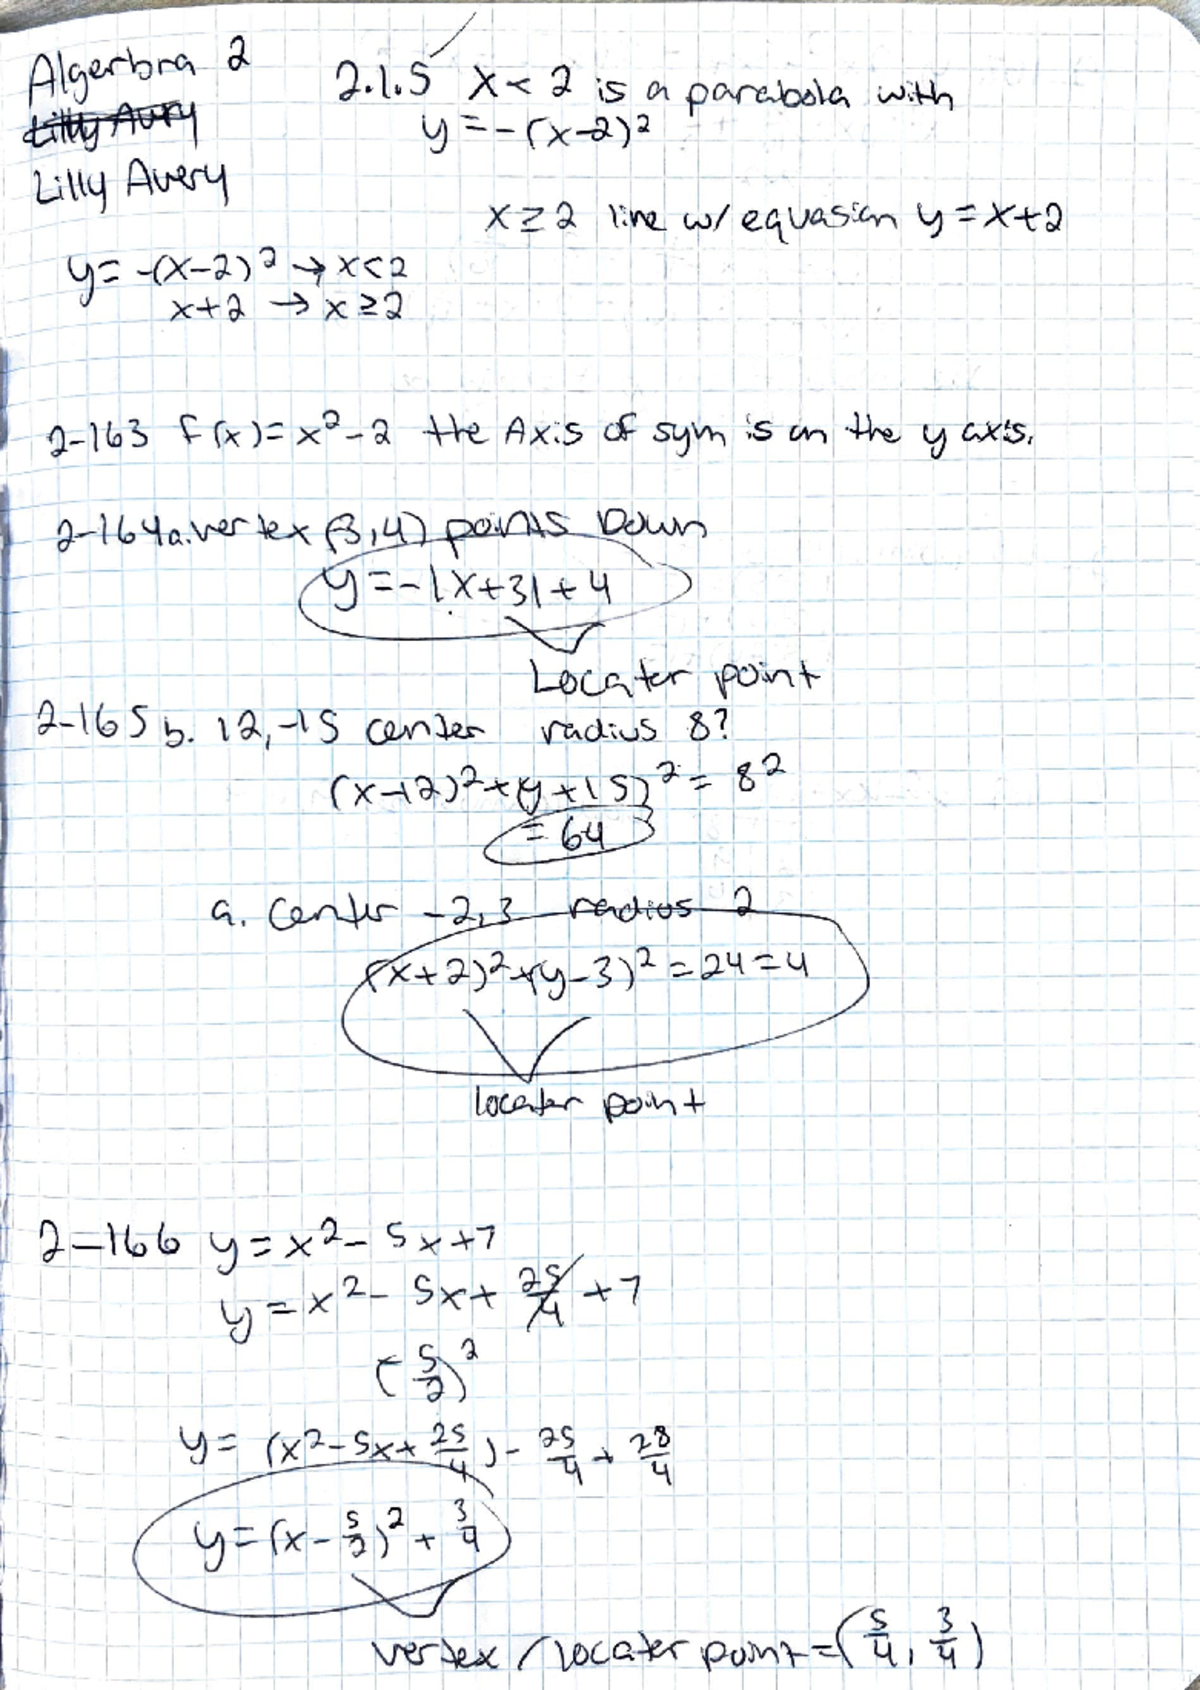 Algerbra 2
Lilly Avery
2.1.5 x < 2 is a parabola with
y = -(x-2)²
x ≥ 2 line w/ equasian y = x+2
y = -(x-2)² → x<2
x+2 → x ≥ 2
2-163 f(x) = x² - 2 the Axis of sym is on the y axis.
2-164a. vertex (-3,4) points Down
y = -|x+3| + 4
Locater point
2-165 b. 12,-15 center radius 8?
(x-12)² + (y+15)² = 8²
= 64
a. center -2,3 radius 2
(x+2)² + (y-3)² = 24 = 4
locater point
2-166 y = x² - 5x + 7
y = x² - 5x + 25/4 + 7
(-5/2)²
y = (x² - 5x + 25/4) - 25/4 + 28/4
y = (x - 5/2)² + 3/4
vertex / locater point = (5/4, 3/4)